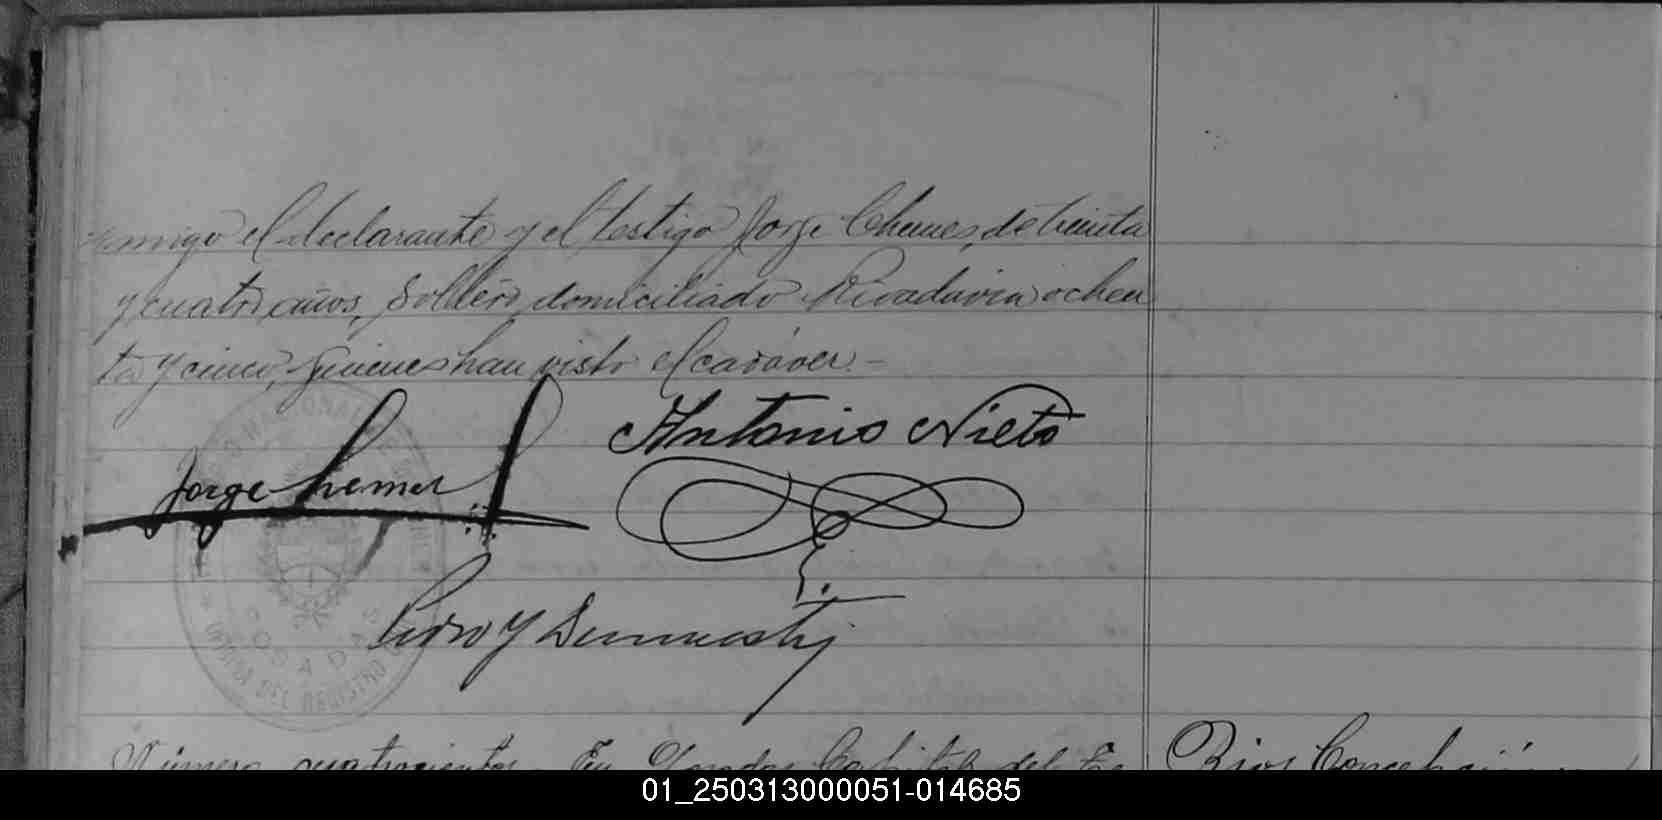 conmigo el declarante y el testigo Jorge Chemes, de treinta
y cuatro años, soltero domiciliado Rivadavia ochen
ta y cinco, quienes han visto el cadáver.-
Antonio Nieto
Jorge Chemes
Pedro Y
POSADAS
Número cuatrocientos. En Posadas Capital del Te
Rios Concepción
01_250313000051-014685